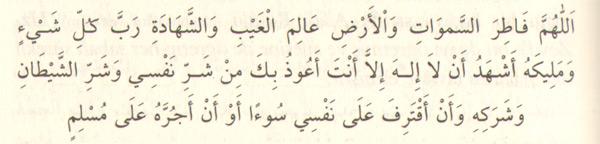 اَللّٰهُمَّ فَاطِرَ السَّمٰوَاتِ وَالْأَرْضِ عَالِمَ الْغَيْبِ وَالشَّهَادَةِ رَبَّ كُلِّ شَيْءٍ
وَمَلِيكَهُ أَشْهَدُ أَنْ لَا إِلٰهَ إِلَّا أَنْتَ أَعُوذُ بِكَ مِنْ شَرِّ نَفْسِي وَشَرِّ الشَّيْطَانِ
وَشَرَكِهِ وَأَنْ أَقْتَرِفَ عَلَى نَفْسِي سُوءًا أَوْ أَنْ أَجُرَّهُ عَلَى مُسْلِمٍ